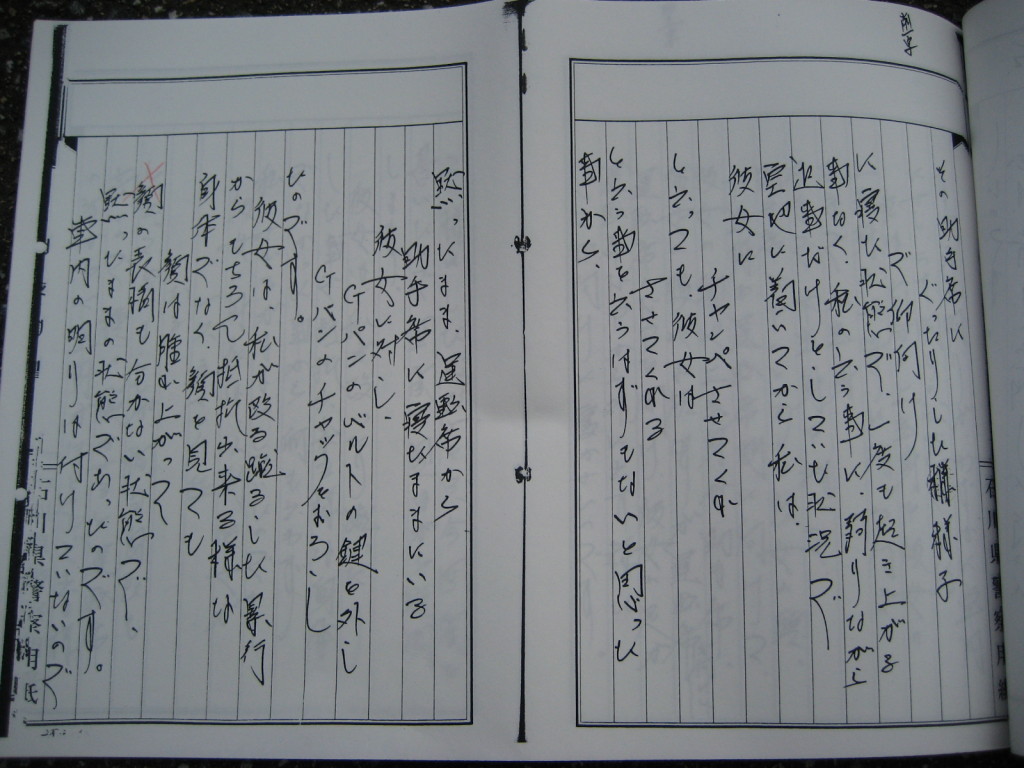 その助手席に
ぐったりした様子
で仰向け
に寝た状態で、一度も起き上がる
事なく、私の云う事に、訝りながら
返事だけをしている状況で
空地に着いてから私は、
彼女に
チャンペさせてくれ
と云っても、彼女は
させてくれる
と云う事を云うはずもないと思った
事から、
石川県警察用紙
黙ったまま、運転席から
助手席に寝たままにいる
彼女に対し
Gパンのベルトの鍵を外し
Gパンのチャックをおろし
たのです。
彼女は、私が殴る蹴るした暴行
からもちろん抵抗出来る様な
身体でなく、顔を見ても
顔は腫れ上がって
顔の表情も分からない状態で、
黙ったままの状態であったのです。
車内の明りは付けていないので
石川県警察用紙